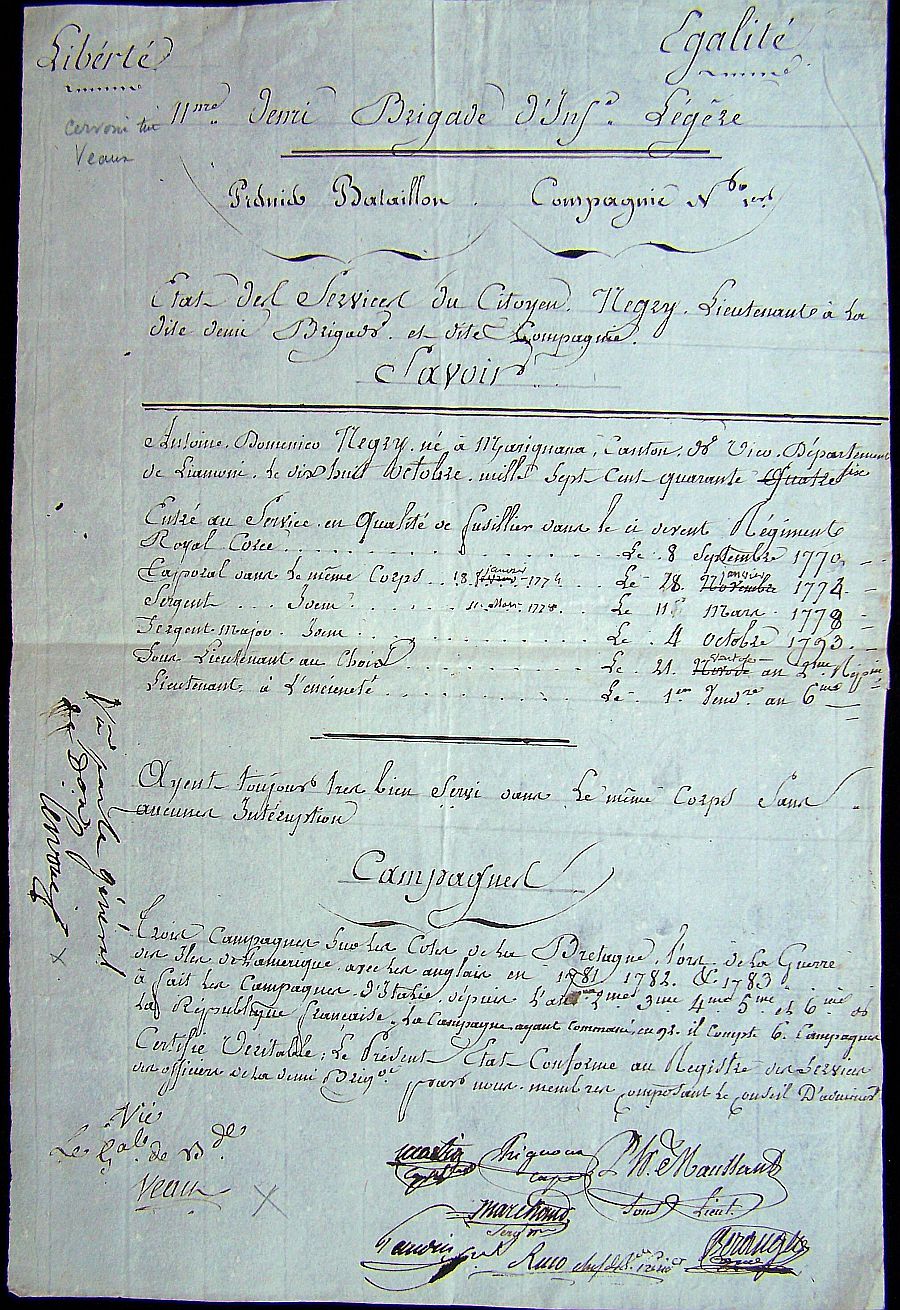 Liberté Egalité
11me. demi Brigade d'Inf. Légère
Cervoni
Veaux
Bataillon. Compagnie N
Etat des Services du Citoyen. Negry. Lieutenant à La
dite demi Brigade. et dite Compagnie.
Savoir
Antoine. Domenico Negry. né à Marignana, Canton. de Vico. Département
de Liamone. Le dix huit Octobre. mille Sept Cent quarante Quatre six
Entré au Service en Qualité de fusillier dans le ci devent Régiment
Royal Corce . . . . . Le 8 Septembre 1770
Caporal dans Le même Corps . . 18. janvier 1774 Le 28. Novembre janvier 1774
Sergent . . . Idem . . . . . 11. Mars. 1778 Le 11 Mars. 1778
Sergent Major. Idem . . . . . Le 4 Octobre 1793
Sous Lieutenant au Choix . . . . . Le 21. an 2me
Lieutenant à L'encieneté . . . . . Le 1er Vendre an 6me
Ayent toujours tres bien Servi dans Le même Corps Sans
aucunes Intéruption
Vu par le Général
Campagnes
Trois Campagnes Sur Les Cotes de La Bretagne, Lors de La Guerre
des Iles de Lamerique avec Les anglais en 1781 1782. & 1783.
à fait Les Campagnes d'Italie, depuis L'an 2me 3me 4me 5me et 6me de
La République française. La Campagne ayant commencé en 92. il compte 6. Campagnes
Certifie Veritable; Le Présent Etat Conforme au Registre des Services
des officiers de La demi Brigde. par nous membres composant Le Conseil D'administ
Vu
Le Gal. de Bde
Veaux
Martin
Marchand
Sous Lieut.